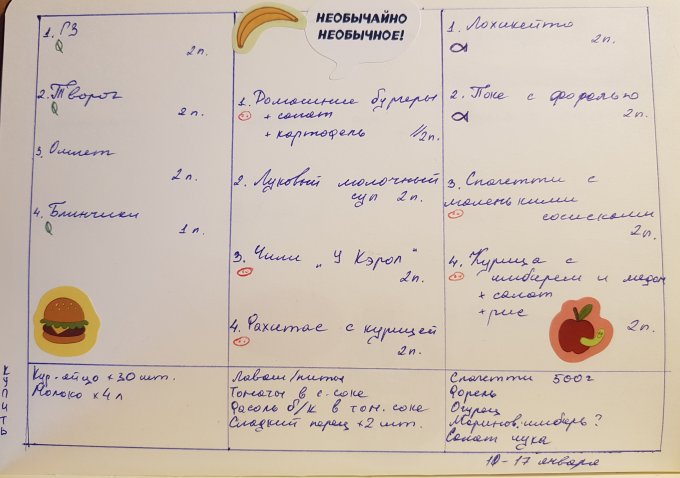 НЕОБЫЧАЙНО
НЕОБЫЧНОЕ!
1. ГЗ
2п.
2. Творог
2п.
3. Омлет
2п.
4. Блинчики
1п.
1. Домашние бургеры
+ салат
+ картофель //2п.
2. Луковый молочный
суп 2п.
3. Чили „У Кэрол"
2п.
4. Фахитас с курицей
2п.
1. Лохикейтто
2п.
2. Поке с форелью
2п.
3. Спагетти с
маленькими
сосисками
2п.
4. Курица с
имбирем и медом
+ салат
+ рис
2п.
КУПИТЬ
Кур. яйцо + 30 шт.
Молоко х4л
Лаваш/питы
Томаты в с. соке
Фасоль б/к в том. соке
Сладкий перец + 2 шт.
Спагетти 500г
Форель
Огурец
Маринов. имбирь?
Салат чука
10-17 января